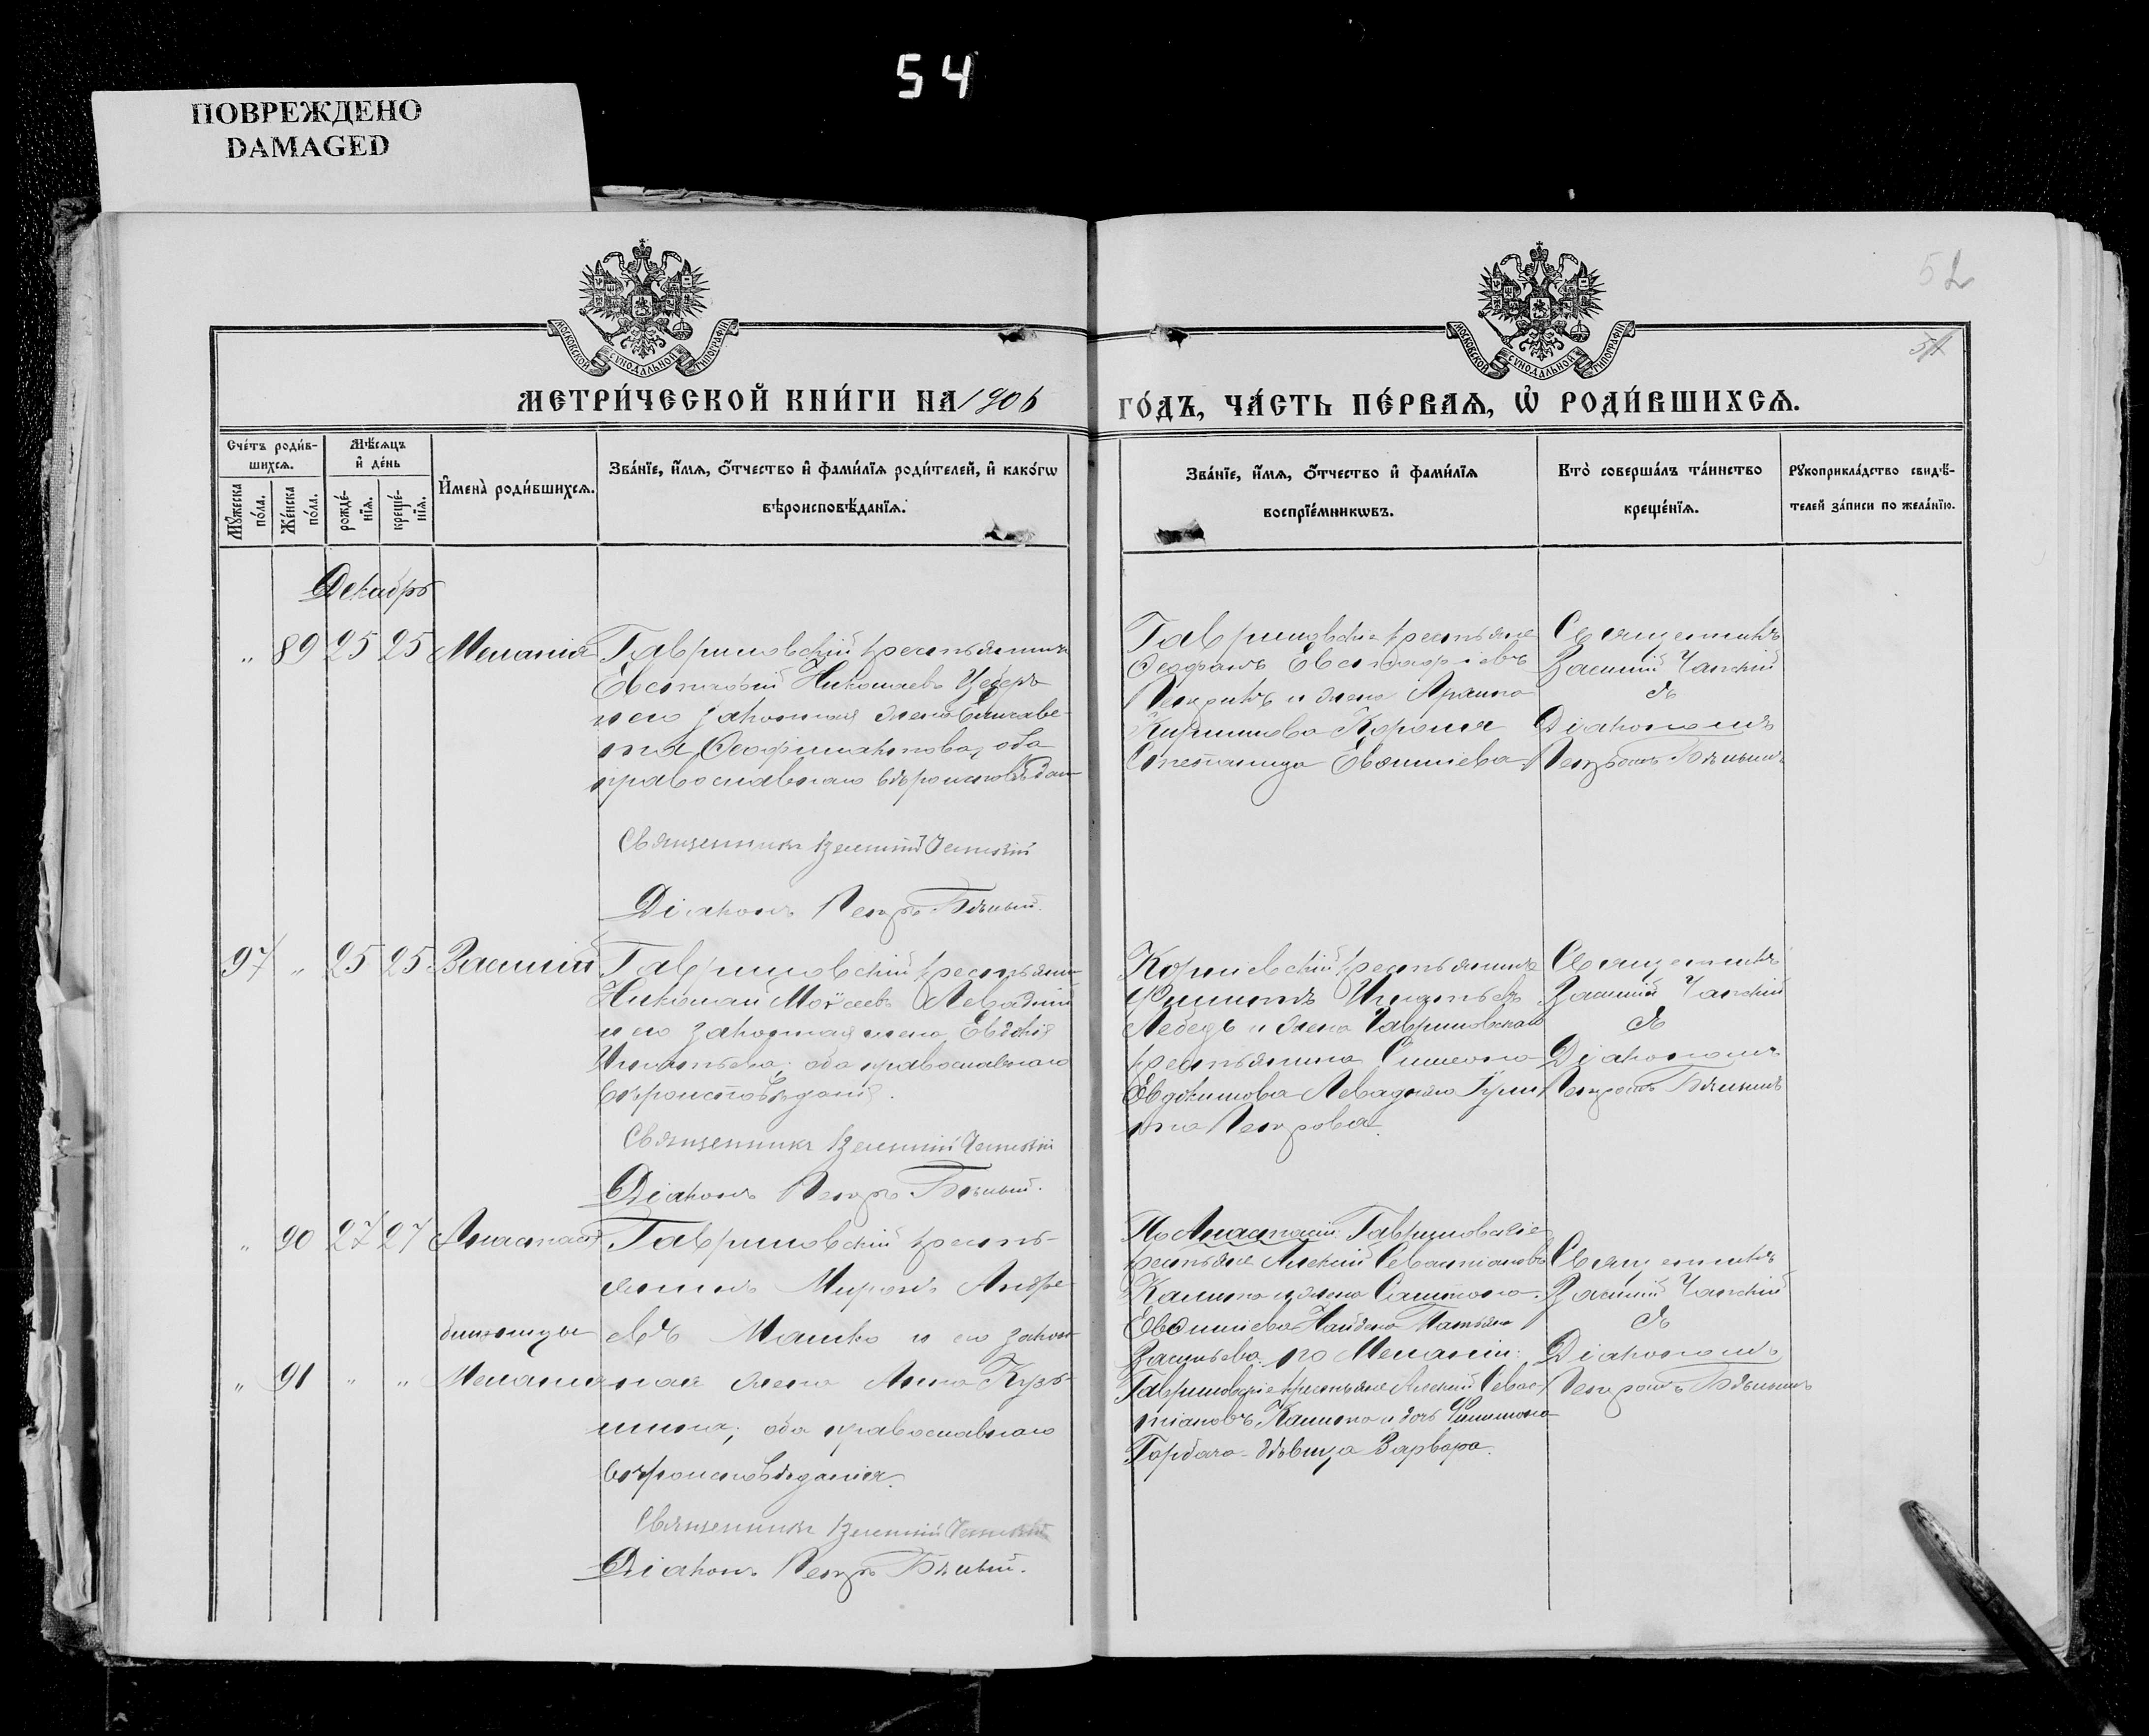 54
ПОВРЕЖДЕНО
DAMAGED
52
51
МОСКОВСКОЙ СѴНОДАЛЬНОЙ ТИПОГРАФІИ
МОСКОВСКОЙ СѴНОДАЛЬНОЙ ТИПОГРАФІИ
МЕТРИ́ЧЕСКОЙ КНИ́ГИ НА 1906
ГО́ДЪ, ЧА́СТЬ ПЕ́РВАѦ, Ѡ҆ РОДИ́ВШИХСѦ.
Сче́тъ роди́в-
шихсѧ.
Мꙋ́жеска по́ла.
Же́нска по́ла.
Мѣ́сѧцъ
и҆ де́нь
рожде́-
нїѧ.
креще́-
нїѧ.
И҆мена̀ роди́вшихсѧ.
Зва́нїе, и҆́мѧ, ѻ҆́тчество и҆ фами́лїѧ роди́телей, и҆ како́гѡ
вѣроисповѣ́данїѧ.
Зва́нїе, и҆́мѧ, ѻ҆́тчество и҆ фами́лїѧ
воспрїе́мникѡвъ.
Кто̀ соверша́лъ та́инство
креще́нїѧ.
Рꙋкоприкла́дство свидѣ́-
телей за́писи по жела́нїю.
Декабрь
„ 89 25 25 Меланія
Гавриловскій крестьянинъ
Евстафій Николаевъ
и его законная жена Елисаве-
та Феофилактова, оба
православнаго вѣроисповѣдан
Священникъ Василий
Діаконъ Петръ Бѣлый.
Гавриловскіе крестьяне
Феофанъ Евстафіевъ
и жена
Кириллова Короля
Степанида Евфиміева
Священникъ
Василій
съ
Діакономъ
Петромъ Бѣлымъ
97 „ 25 25 Василій
Гавриловскій крестьянин
Николай Моисеевъ Левадній
и его законная жена Евдокія
Игнатьева, оба православнаго
вѣроисповѣданія.
Священникъ Василий
Діаконъ Петръ Бѣлый.
крестьянинъ
Филиппъ Игнатьевъ
Лебедь и жена Гавриловскаго
крестьянина Симеона
Евдокимова Леваднаго Іули
та Петрова.
Священникъ
Василій
съ
Діакономъ
Петромъ Бѣлымъ
„ 90 27 27 Анастасія
близнецы
„ 91 „ „ Меланія
Гавриловскій кресть-
янинъ Миронъ Андре-
евъ Машко и его закон-
ная жена Анна Кузь-
мина, оба православнаго
вѣроисповѣданія.
Священникъ Василий
Діаконъ Петръ Бѣлый.
По Анастасіи: Гавриловскіе
крестьяне Алексій Севастіановъ
Калина и жена
Евфиміева Найдена Татьяна
Васильева. По Меланіи:
Гавриловскіе крестьяне Алексій Севас-
тіановъ Калина и дочь Филиппа
Горбача дѣвица Варвара.
Священникъ
Василій
съ
Діакономъ
Петромъ Бѣлымъ